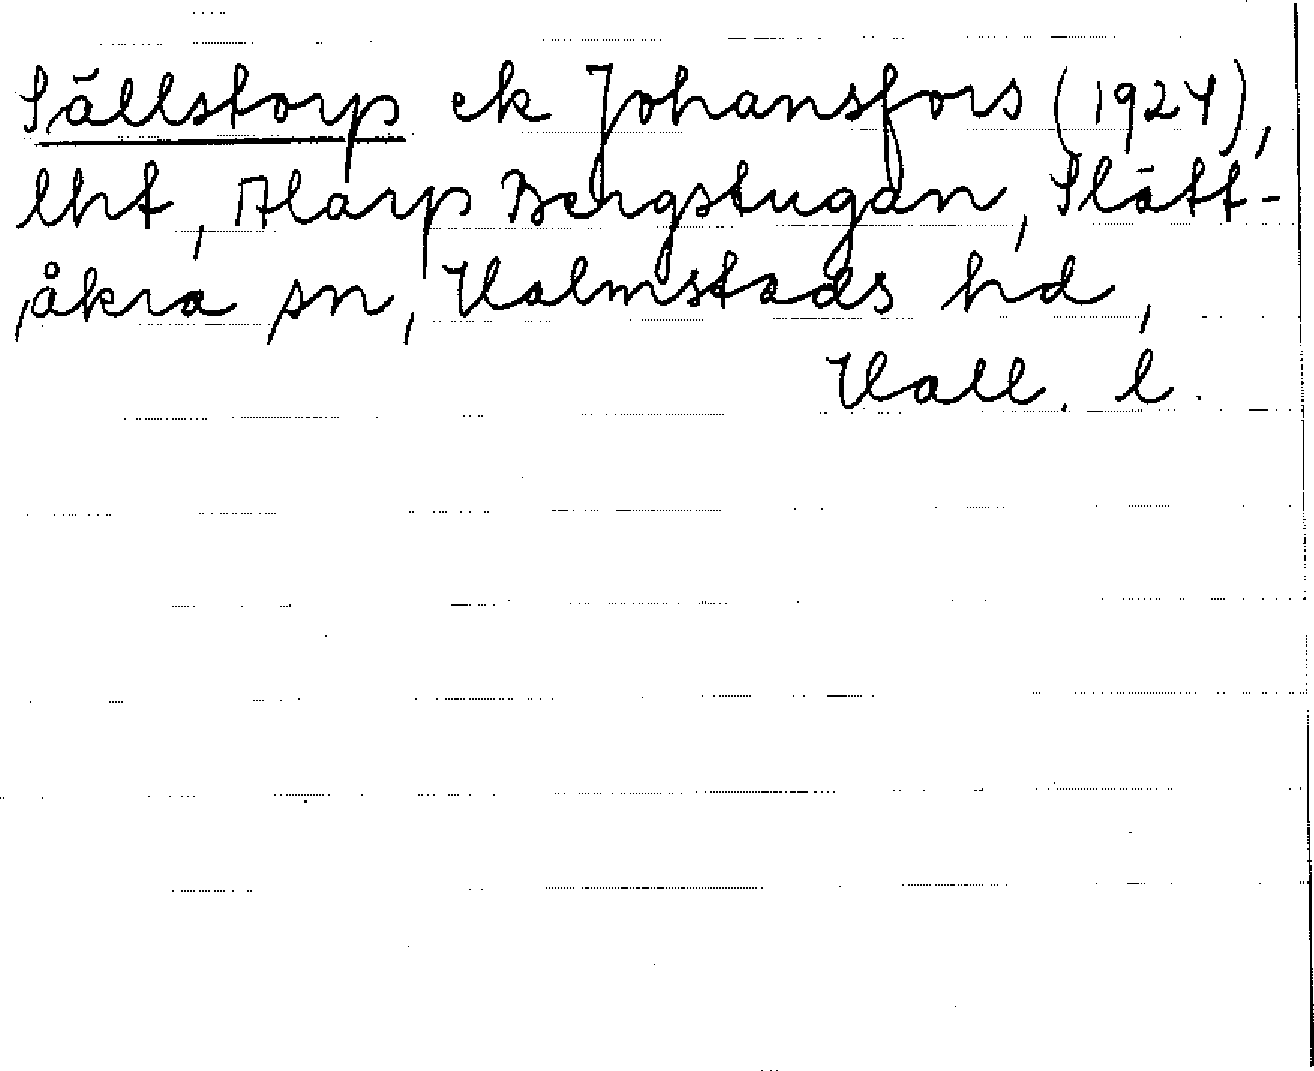 Sällstorp ek Johansfors (1924),
lht, Alarp Bergstugan, Slätt-
åkra sn, Halmstads hd,
Hall. l.